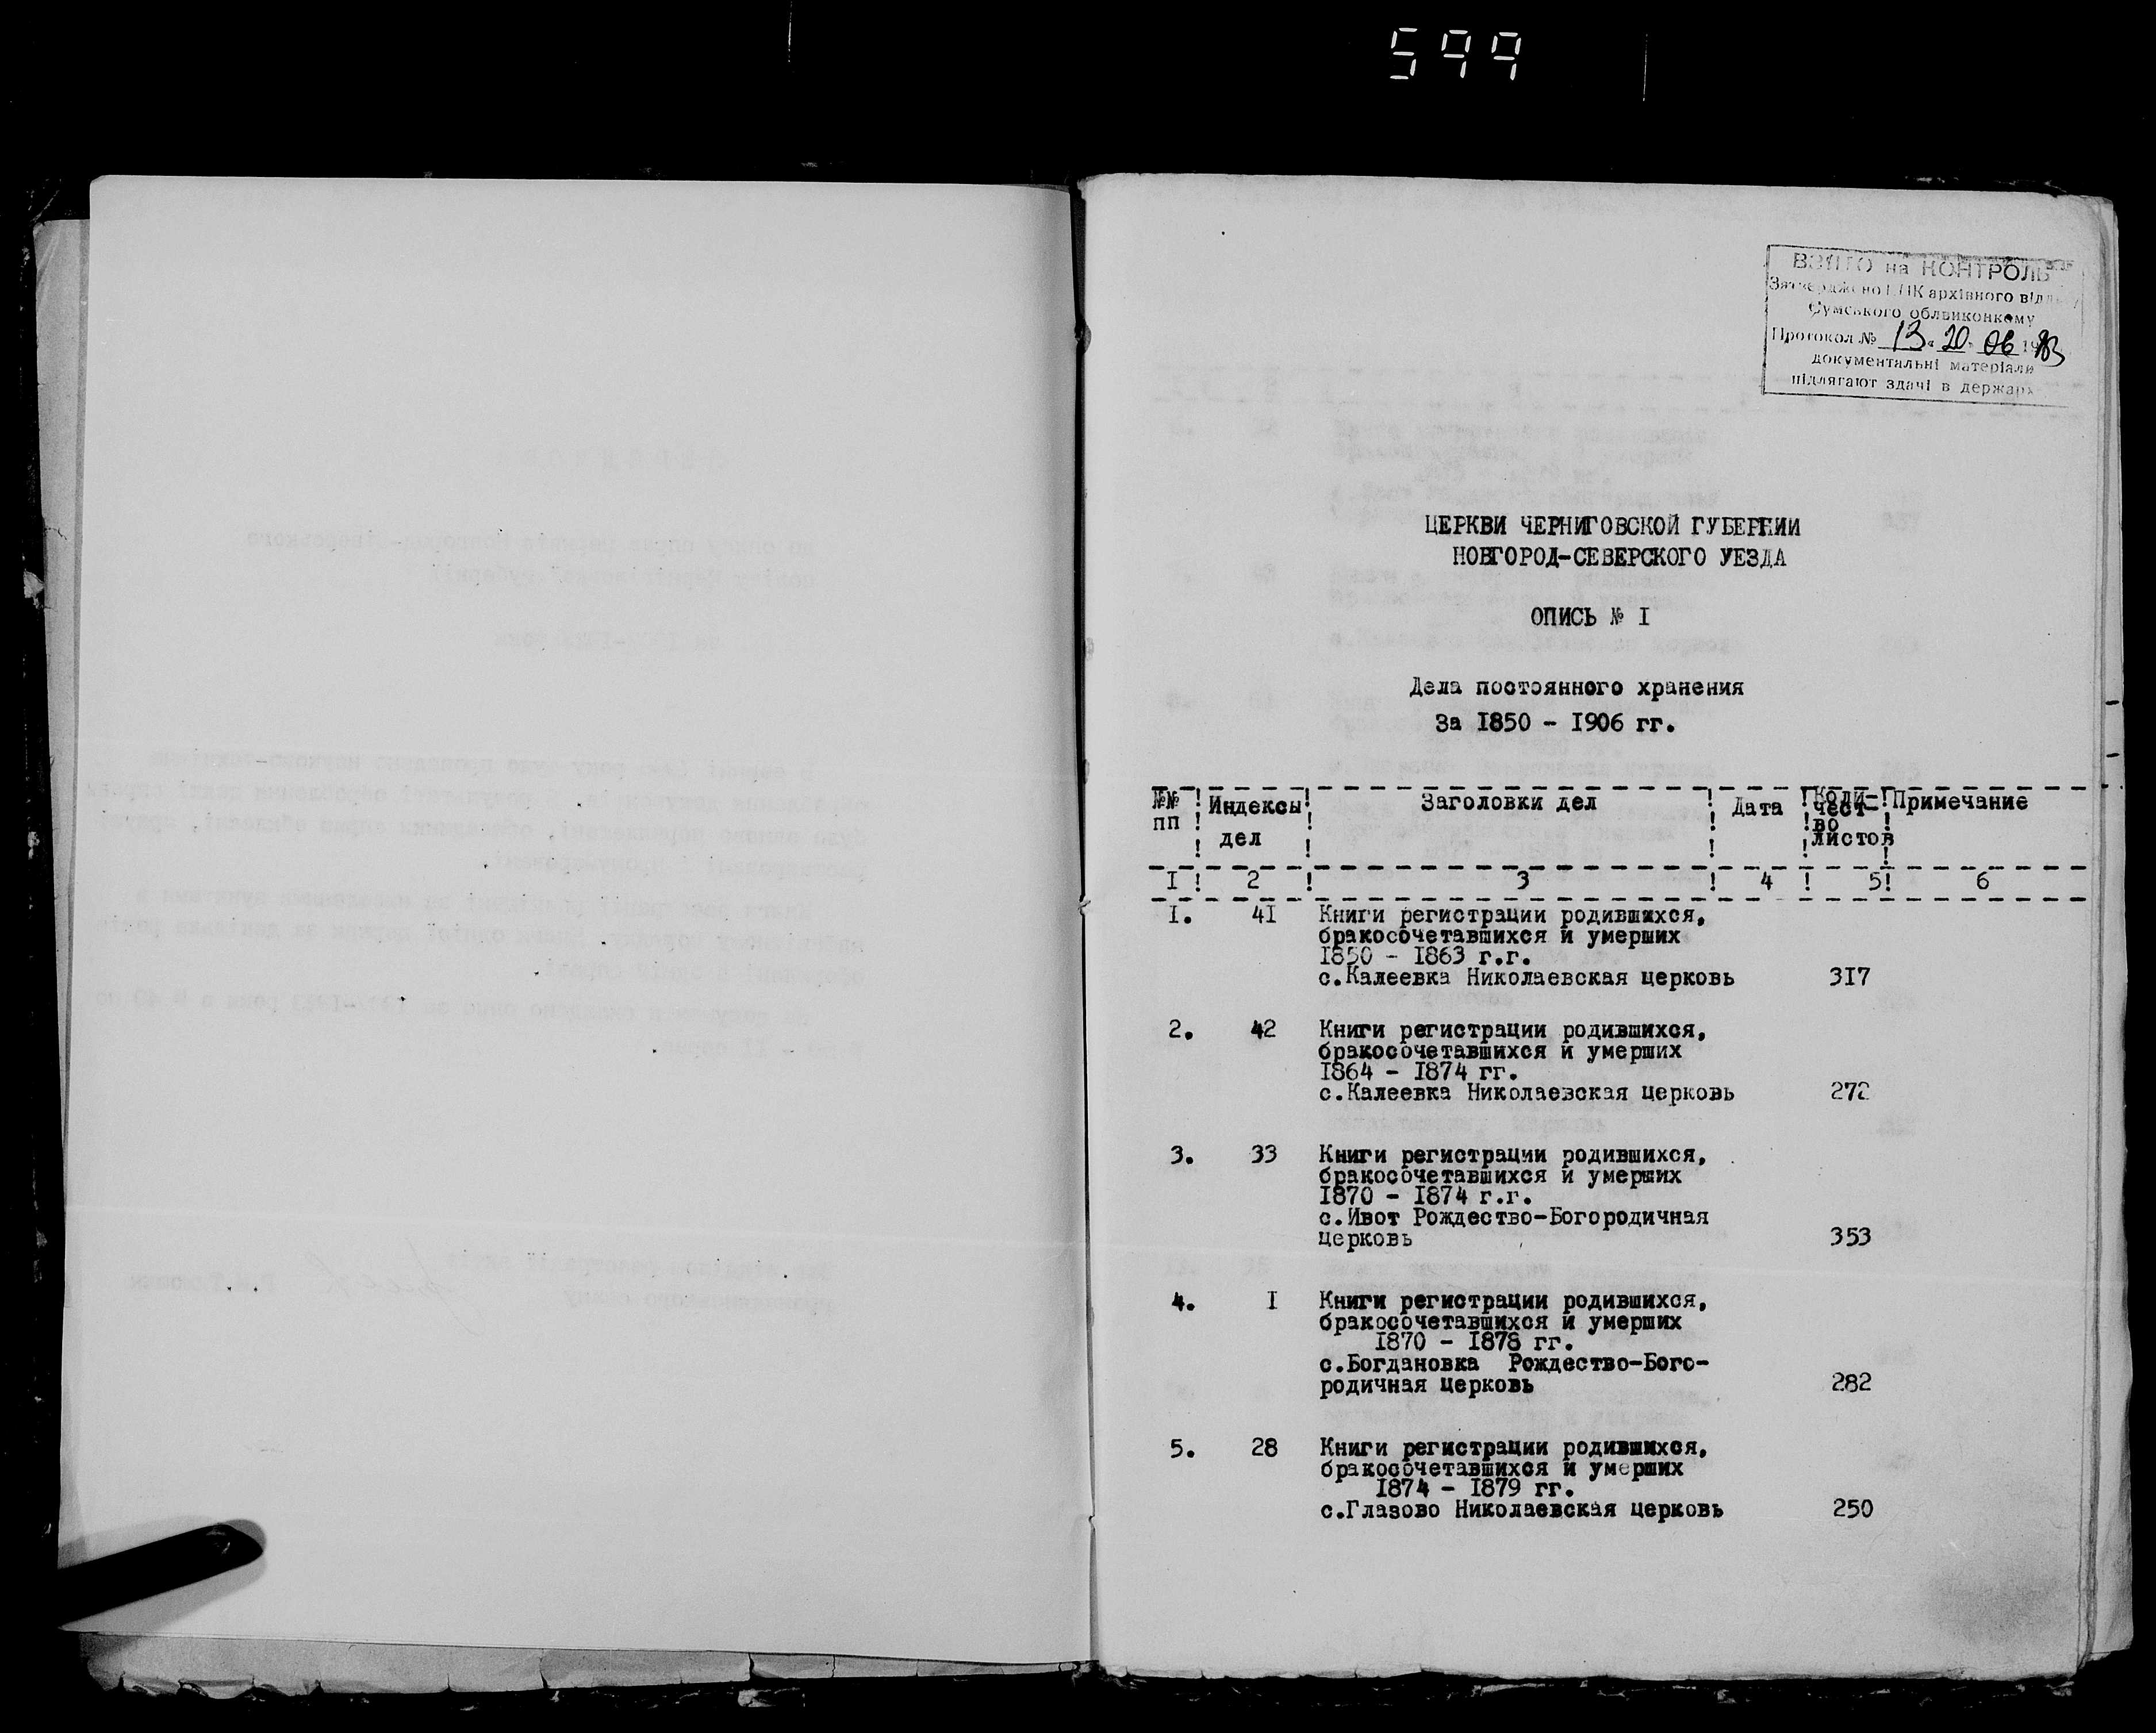 599
ВЗЯТО на КОНТРОЛЬ
Затверджено ЕПК архівного відділу
Сумського облвиконкому
Протокол № 13 "20" 06 19
документальні матеріали
підлягают здачі в держарх
ЦЕРКВИ ЧЕРНИГОВСКОЙ ГУБЕРНИИ
НОВГОРОД-СЕВЕРСКОГО УЕЗДА
ОПИСЬ № I
Дела постоянного хранения
За I850 - I906 гг.
№№ пп ! Индексы дел ! Заголовки дел ! Дата ! Коли-чест-во листов ! Примечание
I ! 2 ! 3 ! 4 ! 5! 6
I. 4I Книги регистрации родившихся,
бракосочетавшихся и умерших
I850 - I863 г.г.
с.Калеевка Николаевская церковь 3I7
2. 42 Книги регистрации родившихся,
бракосочетавшихся и умерших
I864 - I874 гг.
с.Калеевка Николаевская церковь 272
3. 33 Книги регистрации родившихся,
бракосочетавшихся и умерших
I870 - I874 г.г.
с.Ивот Рождество-Богородичная
церковь 353
4. I Книги регистрации родившихся,
бракосочетавшихся и умерших
I870 - I878 гг.
с.Богдановка Рождество-Бого-
родичная церковь 282
5. 28 Книги регистрации родившихся,
бракосочетавшихся и умерших
I874 - I879 гг.
с.Глазово Николаевская церковь 250